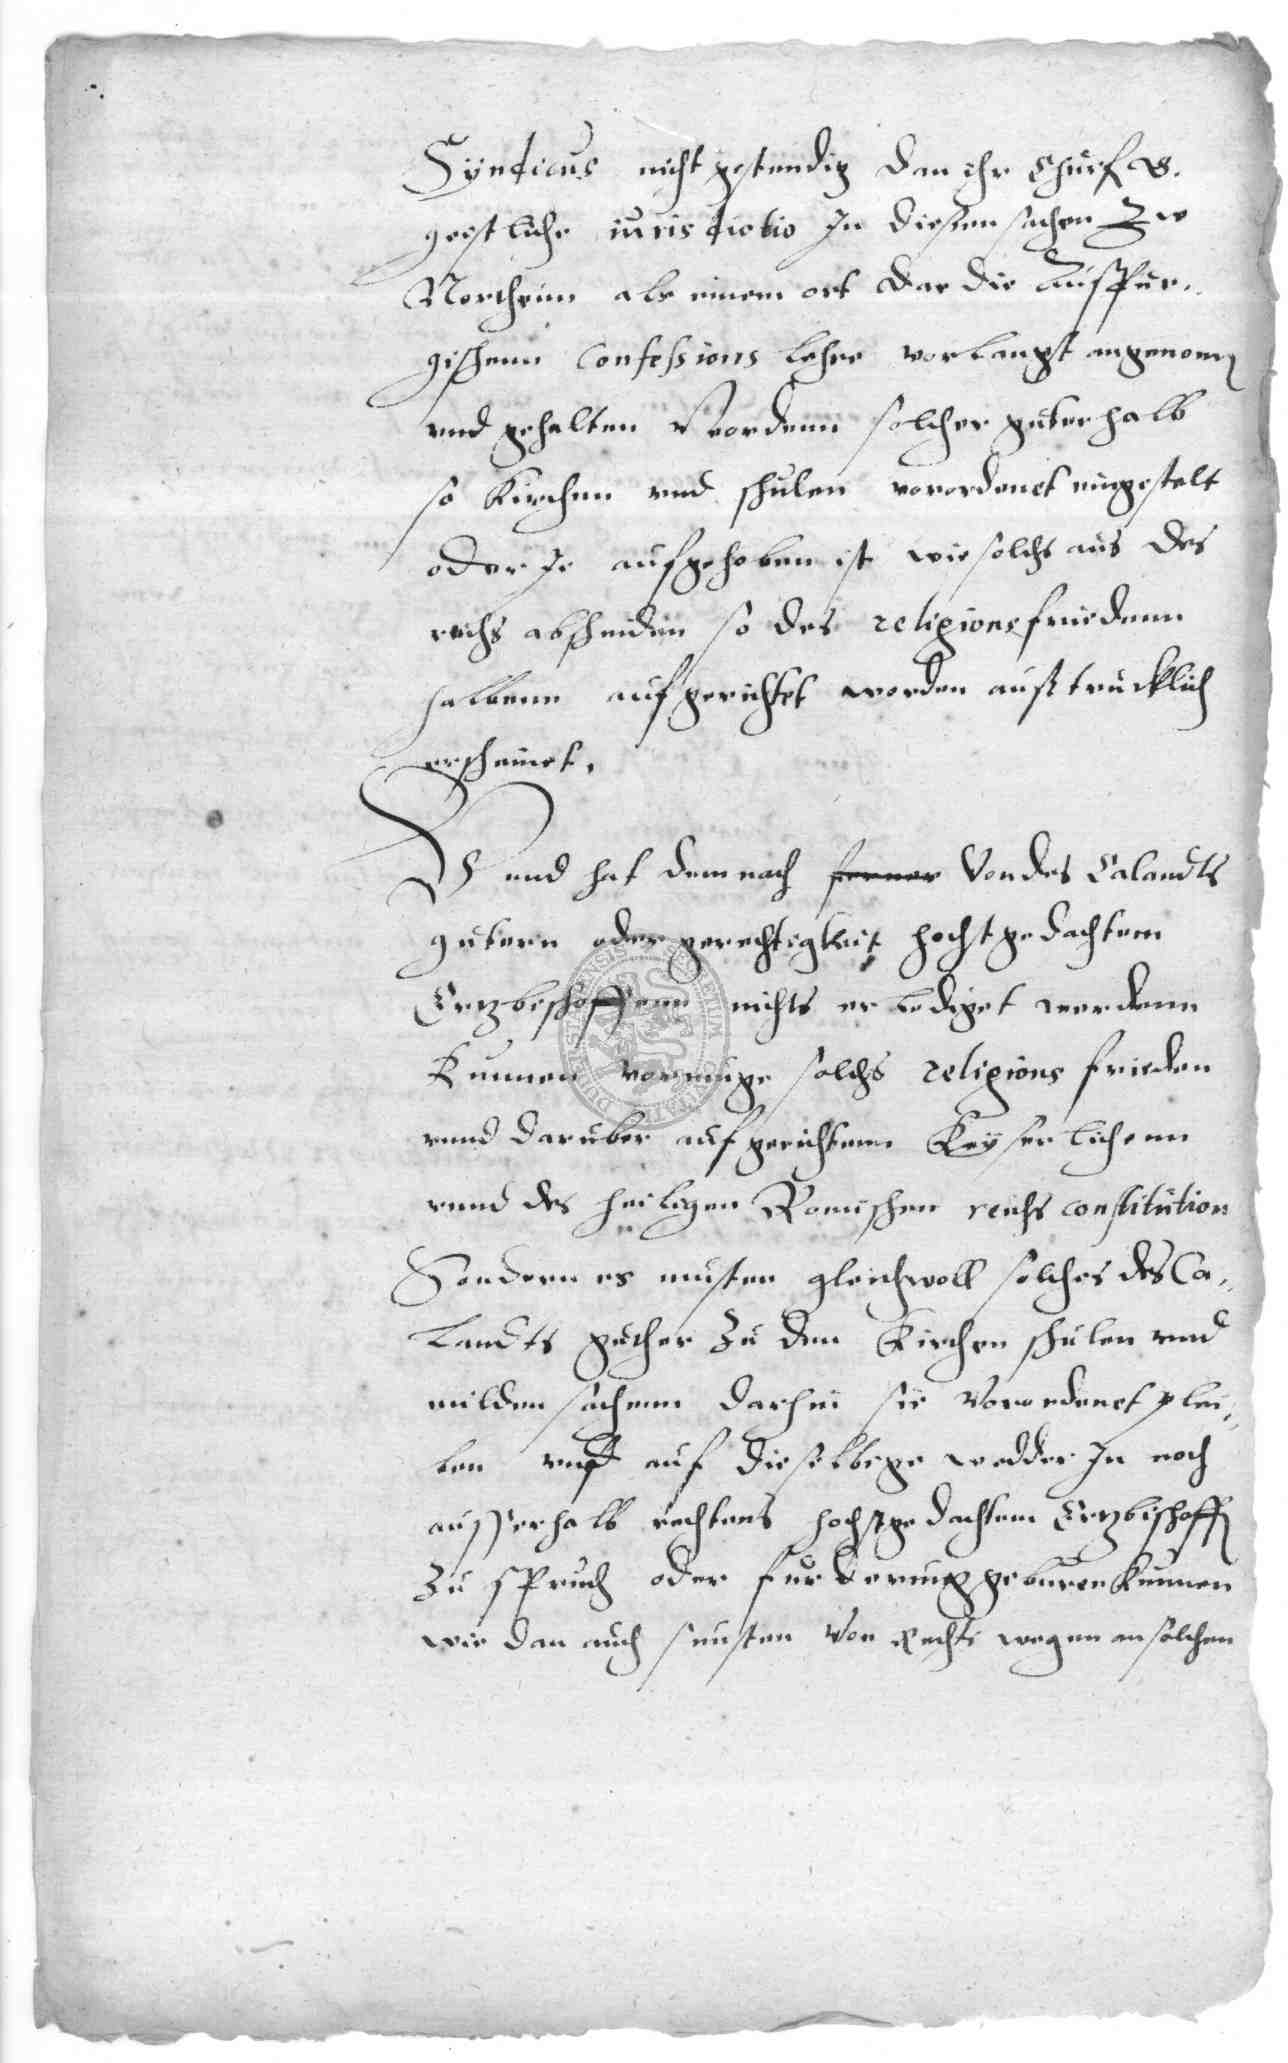 Syndicus nicht gestendig dan ihr Churf G.
geistliche iurisdictio In diesenn sachen Zw
Northeim als einem ort dar die Auspur..
gischenn Confessions lehre vorlangst angenomen
und gehalten Wordenn solcher guter halb
so Kirchen und schulen vorordenet eingestelt
oder Je aufgehoben ist wie solchs aus des
reichs abscheiden so des religions friedenn
halbenn aufgerichtet worden außtrucklich
erscheinet.
Vnnd hat demnach ferner Von des Calandts
gutern oder gerechtigkeit hochstgedachtem
Ertzbischoffenn nichts erlediget werdenn
Kunnen vormuge solchs religions frieden
unnd daruber aufgerichtenn Keyserlichenn
unnd des heiligen Romischen reichs constitution
Sondern es musten gleichwoll solches des Ca..
landts guther Zu den Kirchen schulen und
milden sachenn darhin sie Vorordenet plei..
ben muß auf dieselbige wedder In noch
ausserhalb rechtens hochstgedachtem Ertzbischoffen
Zu spruch oder furderung geburen kunnen
wie dan auch sunsten Von Rechts wegen an solchen